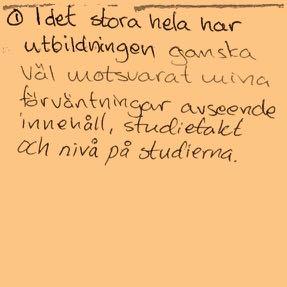 ① I det stora hela har
utbildningen ganska
väl motsvarat mina
förväntningar avseende
innehåll, studietakt
och nivå på studierna.